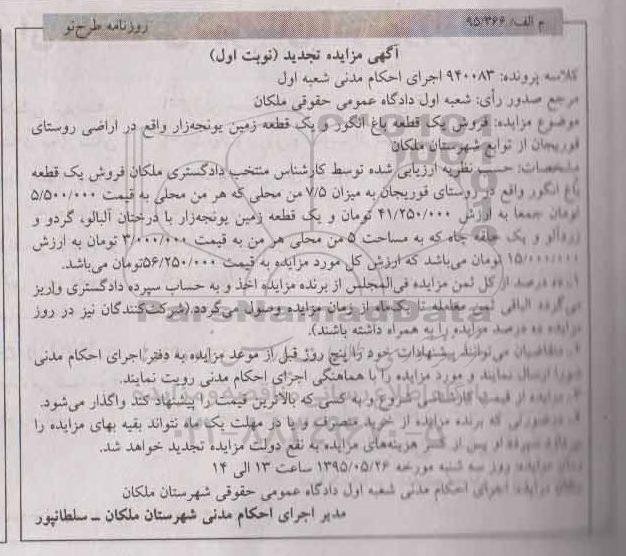 م الف/ ۹۵/۳۶۶ روزنامه طرح‌نو
آگهی مزایده تجدید (نوبت اول)
کلاسه پرونده: ۹۴۰۰۸۳ اجرای احکام مدنی شعبه اول
مرجع صدور رأی: شعبه اول دادگاه عمومی حقوقی ملکان
موضوع مزایده: فروش یک قطعه باغ انگور و یک قطعه زمین یونجه‌زار واقع در اراضی روستای
قوریجان از توابع شهرستان ملکان
مشخصات: حسب نظریه ارزیابی شده توسط کارشناس منتخب دادگستری ملکان فروش یک قطعه
باغ انگور واقع در روستای قوریجان به میزان ۷/۵ من محلی که هر من محلی به قیمت ۵/۵۰۰/۰۰۰
تومان جمعا به ارزش ۴۱/۲۵۰/۰۰۰ تومان و یک قطعه زمین یونجه‌زار با درختان آلبالو، گردو و
زردآلو و یک حلقه چاه که به مساحت ۵ من محلی هر من به قیمت ۳/۰۰۰/۰۰۰ تومان به ارزش
۱۵/۰۰۰/۰۰۰ تومان می‌باشد که ارزش کل مورد مزایده به قیمت ۵۶/۲۵۰/۰۰۰تومان می‌باشد.
۱. ده درصد از کل ثمن مزایده فی‌المجلس از برنده مزایده اخذ و به حساب سپرده دادگستری واریز
می‌گردد الباقی ثمن معامله تا یک‌ماه از زمان مزایده وصول می‌گردد.(شرکت‌کنندگان نیز در روز
مزایده ده درصد مزایده را به همراه داشته باشند).
۲. متقاضیان می‌توانند پیشنهادات خود را پنج روز قبل از موعد مزایده به دفتر اجرای احکام مدنی
شورا ارسال نمایند و مورد مزایده را با هماهنگی اجرای احکام مدنی رویت نمایند.
۳. مزایده از قیمت کارشناسی شروع و به کسی که بالاترین قیمت را پیشنهاد کند واگذار می‌شود.
۴. درصورتی که برنده مزایده از خرید منصرف و یا در مهلت یک ماه نتواند بقیه بهای مزایده را
سپرده او پس از کسر هزینه‌های مزایده به نفع دولت مزایده تجدید خواهد شد.
زمان مزایده: روز سه شنبه مورخه ۱۳۹۵/۰۵/۲۶ ساعت ۱۳ الی ۱۴
مکان مزایده: اجرای احکام مدنی شعبه اول دادگاه عمومی حقوقی شهرستان ملکان
مدیر اجرای احکام مدنی شهرستان ملکان ــ سلطانپور
ParsNamadData